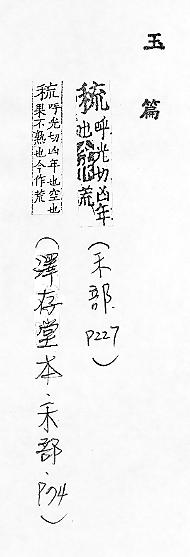 玉篇
𥠢呼光切凶年也今作荒（禾部p227）
𥠢呼光切凶年也空也果不熟也今作荒（澤存堂本·禾部·p74）